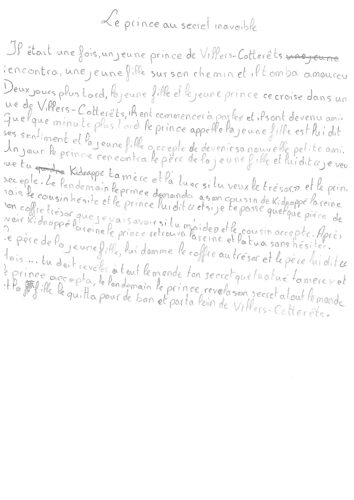 Le prince au secret inavoible
Il était une fois, un jeune prince de Villers-Cotterêts une jeune
rencontra, une jeune fille sur son chemin et il tomba amoureu
Deux jours plus tard, la jeune fille et le jeune prince ce croise dans un
ue de Villers-Cotterêts, ils ent commencer à parler et ils ont devenu ami.
Quelque minute plus tard le prince appelle la jeune fille est lui dit
ses sentiment et la jeune fille accepte de devenir sa nouvelle petite ami.
Un jour le prince rencontra le père de la jeune fille et lui dit je veu
que tu Kidnappe ta mère et la tue si tu veux le trésor et le prin
accepte. Le lendemain le prince demanda a son cousin de Kidnappé la reine
mais le cousin hésite et le prince lui dit et si je te passe quelque pièce de
mon coffre trésor que je vais avoir si tu m'aides et le cousin accepte. Après
avoir Kidnappé la reine le prince retrouva la reine et la tua sans hésiter.
Le père de la jeune fille, lui damme le coffre au trésor et le père lui dit
tois ... tu doit reveler a tout le monde ton secret que tu a tué ta mere et
le prince accepta, le lendemain le prince revela son secret a tout le monde
et la fille le quitta pour de bon et parta loin de Villers-Cotterêts.